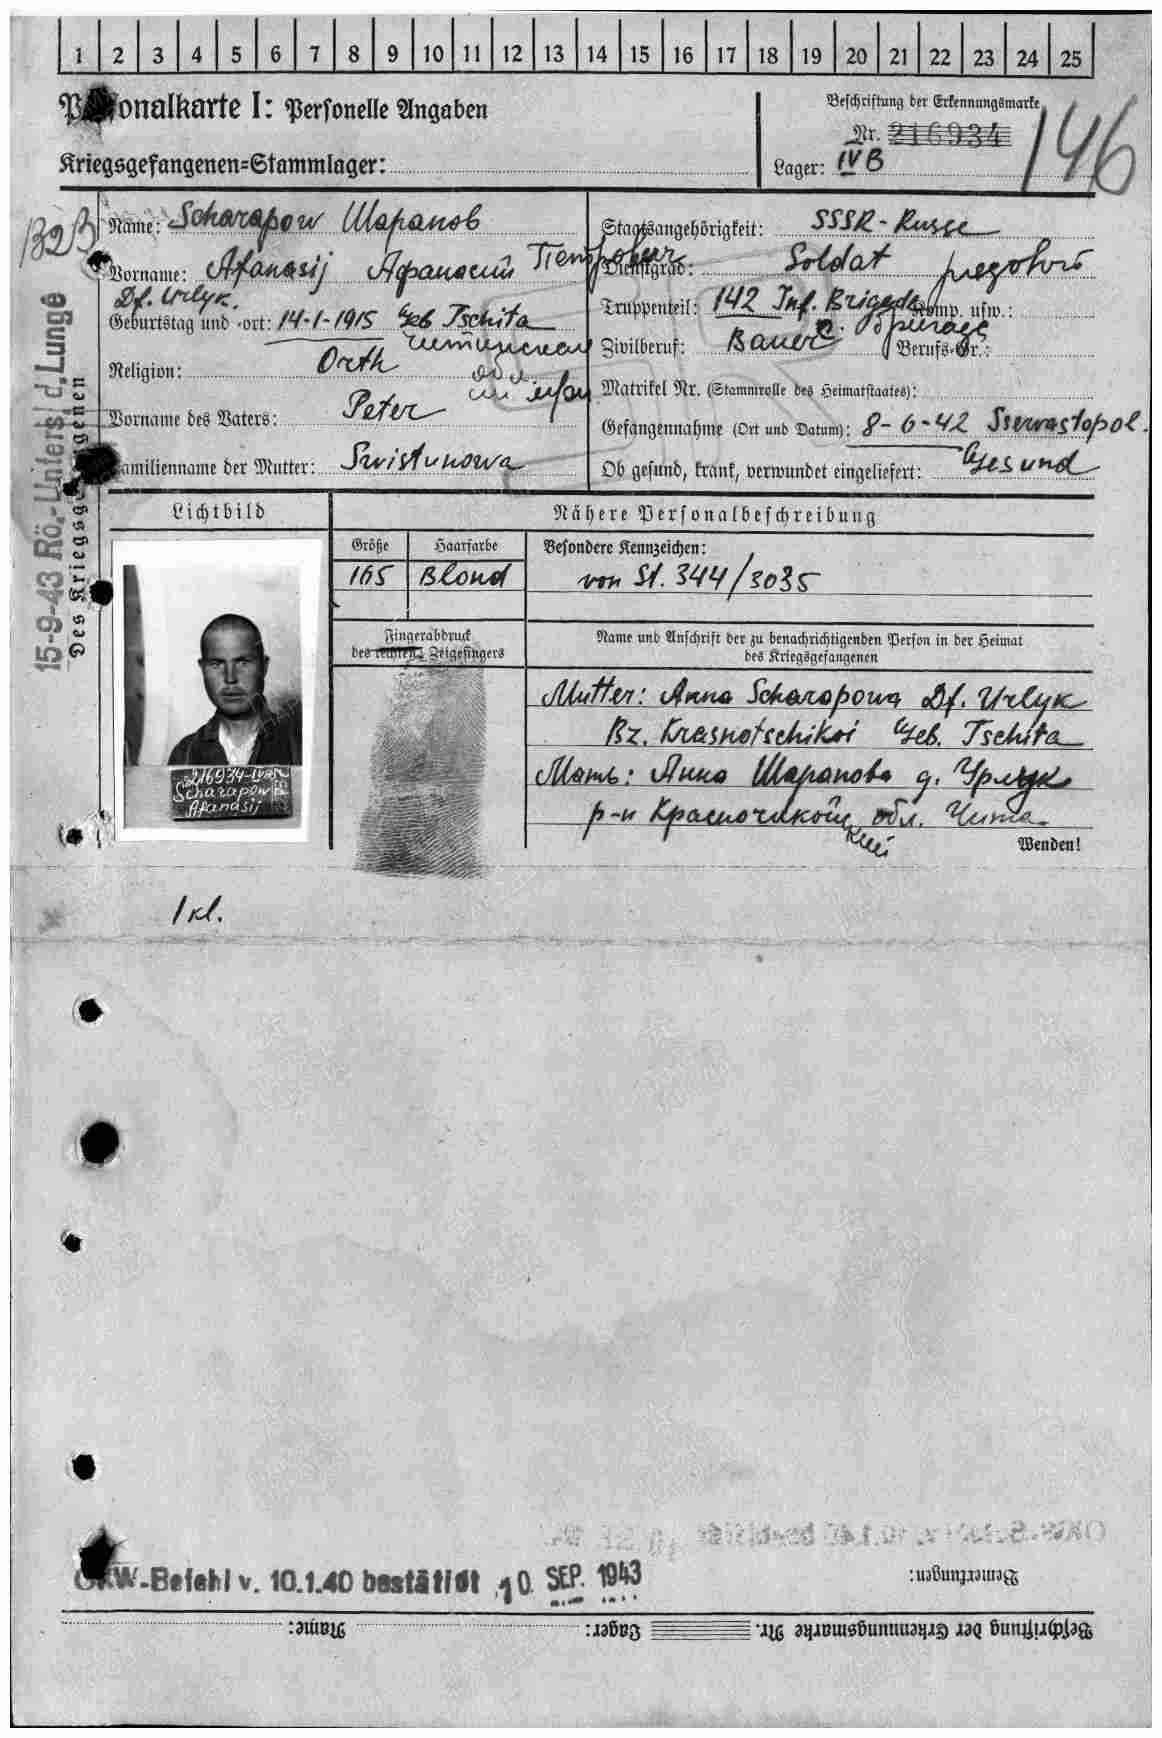 1 2 3 4 5 6 7 8 9 10 11 12 13 14 15 16 17 18 19 20 21 22 23 24 25
Personalkarte I: Personelle Angaben
Kriegsgefangenen=Stammlager:
Beschriftung der Erkennungsmarke
Nr. 216934
Lager: IV B
146
Name: Scharapow Шарапов
Vorname: Afanasij Афанасий Петрович
Df. Urlyk.
Geburtstag und -ort: 14-1-1915 Geb Tschita
читинская
Religion: Orth
Vorname des Vaters: Peter
Familienname der Mutter: Swistunowa
Staatsangehörigkeit: SSSR - Russe
Dienstgrad: Soldat рядовой
Truppenteil: 142 Inf. Brigade Komp. usw.:
Zivilberuf: Bauer Berufs-Gr.:
Matrikel Nr. (Stammrolle des Heimatstaates):
Gefangennahme (Ort und Datum): 8-6-42 Ssewastopol.
Ob gesund, krank, verwundet eingeliefert: Gesund
15-9-43 Rö.-Unters. d. Lunge
Des Kriegsgefangenen
Lichtbild
Nähere Personalbeschreibung
Größe Haarfarbe Besondere Kennzeichen:
165 Blond von St. 344/3035
Fingerabdruck
des rechten Zeigefingers
Name und Anschrift der zu benachrichtigenden Person in der Heimat
des Kriegsgefangenen
Mutter: Anna Scharapowa Df. Urlyk
Bz. Krasnotschikoi Geb. Tschita
Мать: Анна Шарапова д. Урлук
р-н Красночикой обл. Чита
ский
Wenden!
216934-IVB
Scharapow
Afanasij
1 kl.
OKW-Befehl v. 10.1.40 bestätigt 10. SEP. 1943
Bemerkungen:
Beschriftung der Erkennungsmarke Nr. Lager: Name: